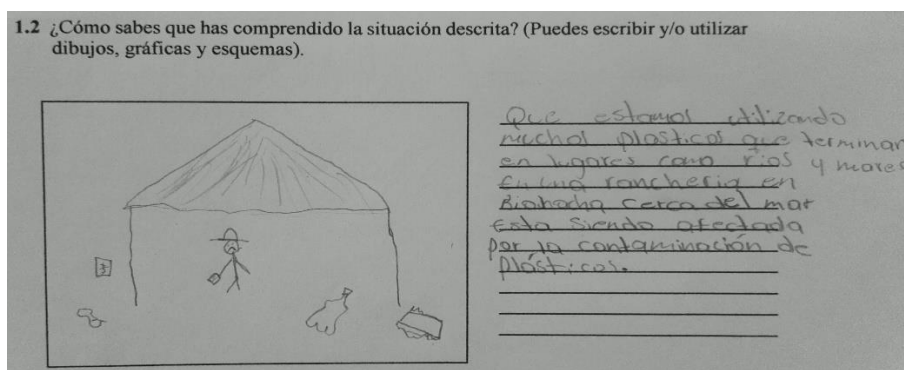 1.2 ¿Cómo sabes que has comprendido la situación descrita? (Puedes escribir y/o utilizar
dibujos, gráficas y esquemas).
Que estamos utilizando
muchos plasticos que terminan
en lugares como rios y mares
En una rancheria en
Riohacha cerca del mar
Esta siendo afectada
por la contaminación de
plásticos.